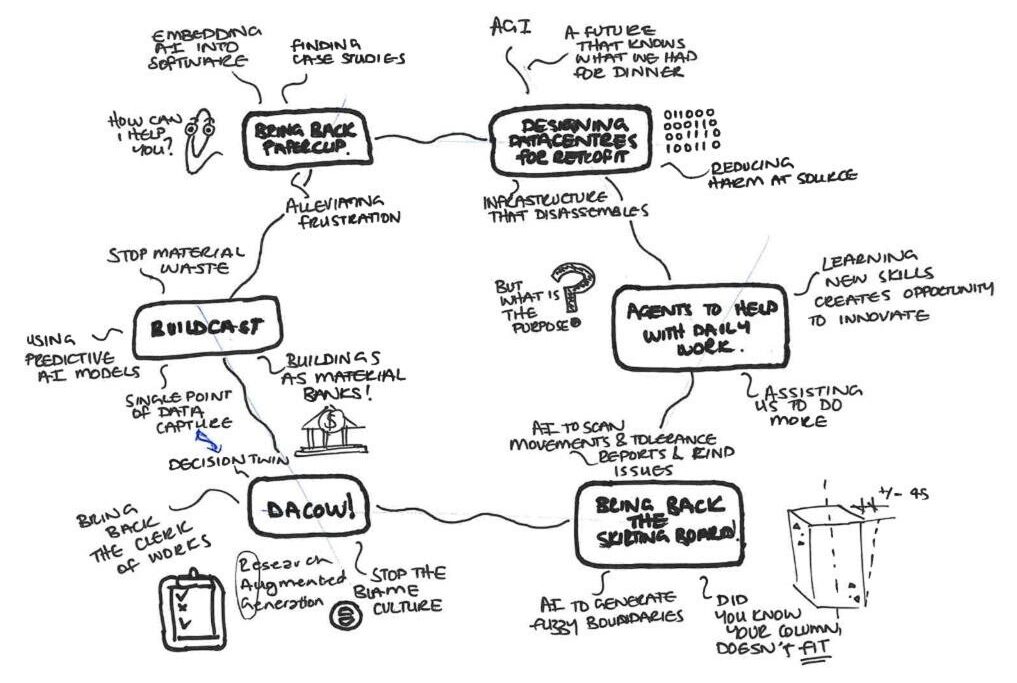 EMBEDDING
AI INTO
SOFTWARE
FINDING
CASE STUDIES
HOW CAN
I HELP
YOU?
BRING BACK
PAPERCLIP.
ALLEVIATING
FRUSTRATION
AGI
A FUTURE
THAT KNOWS
WHAT WE HAD
FOR DINNER
DESIGNING
DATACENTRES
FOR RETROFIT
011000
000110
001110
100110
REDUCING
HARM AT SOURCE
INFRASTRUCTURE
THAT DISASSEMBLES
BUT
WHAT IS
THE
PURPOSE?
?
AGENTS TO HELP
WITH DAILY
WORK.
LEARNING
NEW SKILLS
CREATES OPPORTUNITY
TO INNOVATE
ASSISTING
US TO DO
MORE
STOP MATERIAL
WASTE
BUILDCAST
USING
PREDICTIVE
AI MODELS
SINGLE POINT
OF DATA
CAPTURE
BUILDINGS
AS MATERIAL
BANKS!
$
DECISION TWIN
DACOW!
BRING
BACK
THE CLERK
OF WORKS
Research
Augmented
Generation
STOP THE
BLAME
CULTURE
AI TO SCAN
MOVEMENTS & TOLERANCE
REPORTS & FIND
ISSUES
BRING BACK
THE
SKIRTING BOARD!
AI TO GENERATE
FUZZY BOUNDARIES
DID
YOU KNOW
YOUR COLUMN,
DOESN'T FIT
+/- 45